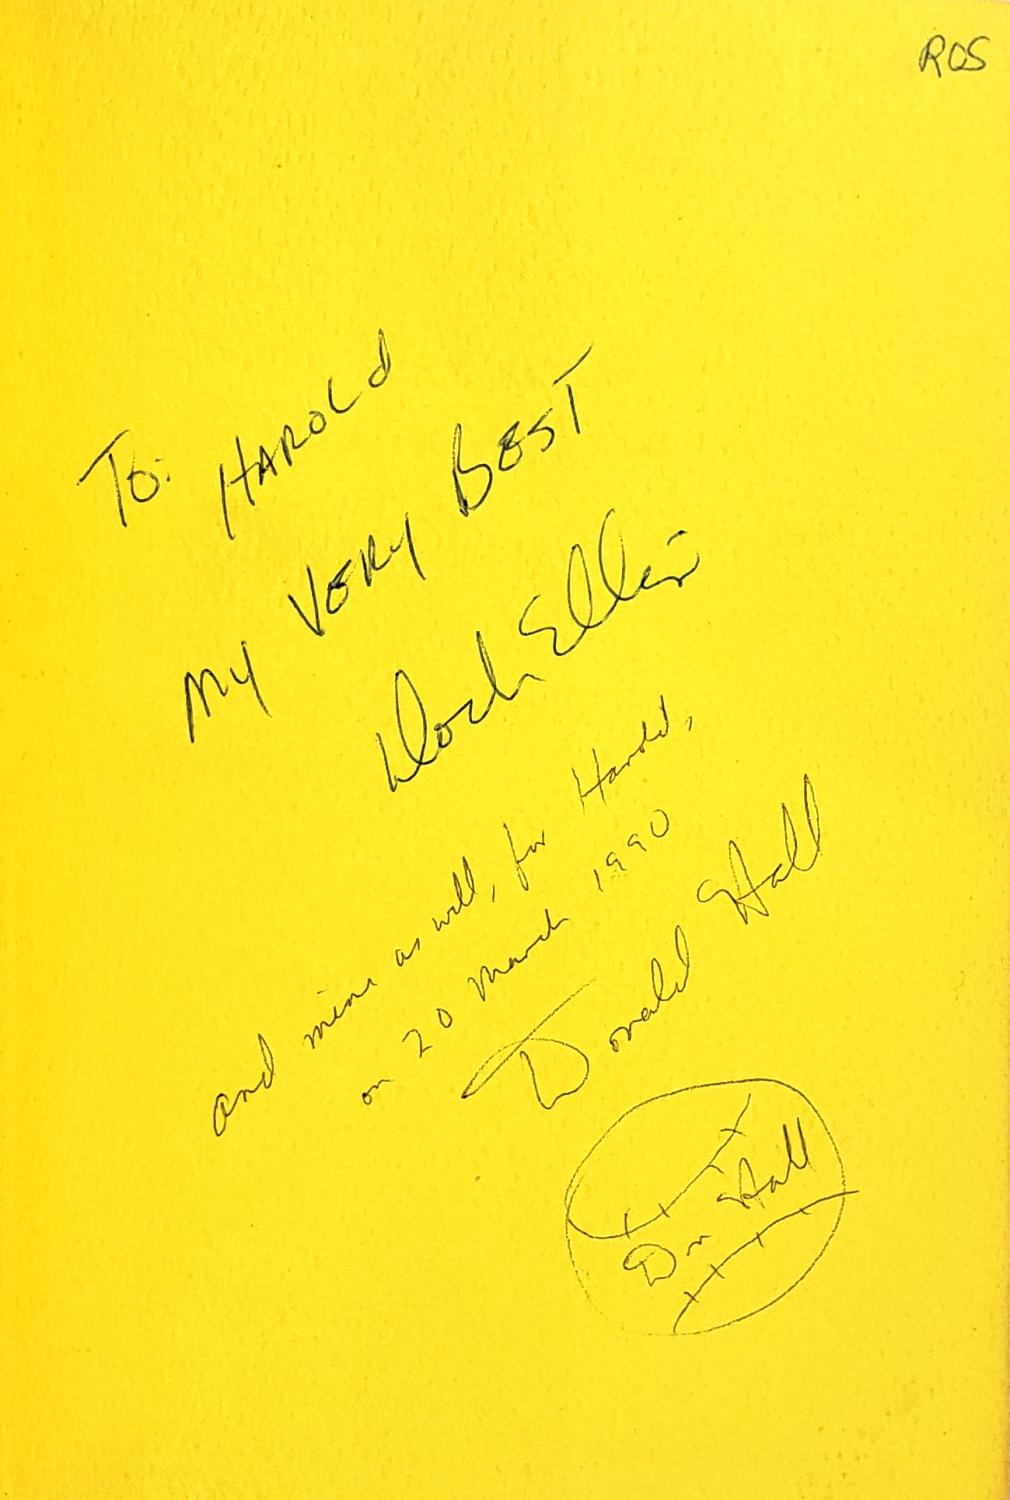 ROS
To: HAROLd
MY VERY BEST
Dock Ellis
and mine as well, for Harold,
on 20 March 1990
Donald Hall
Don Hall